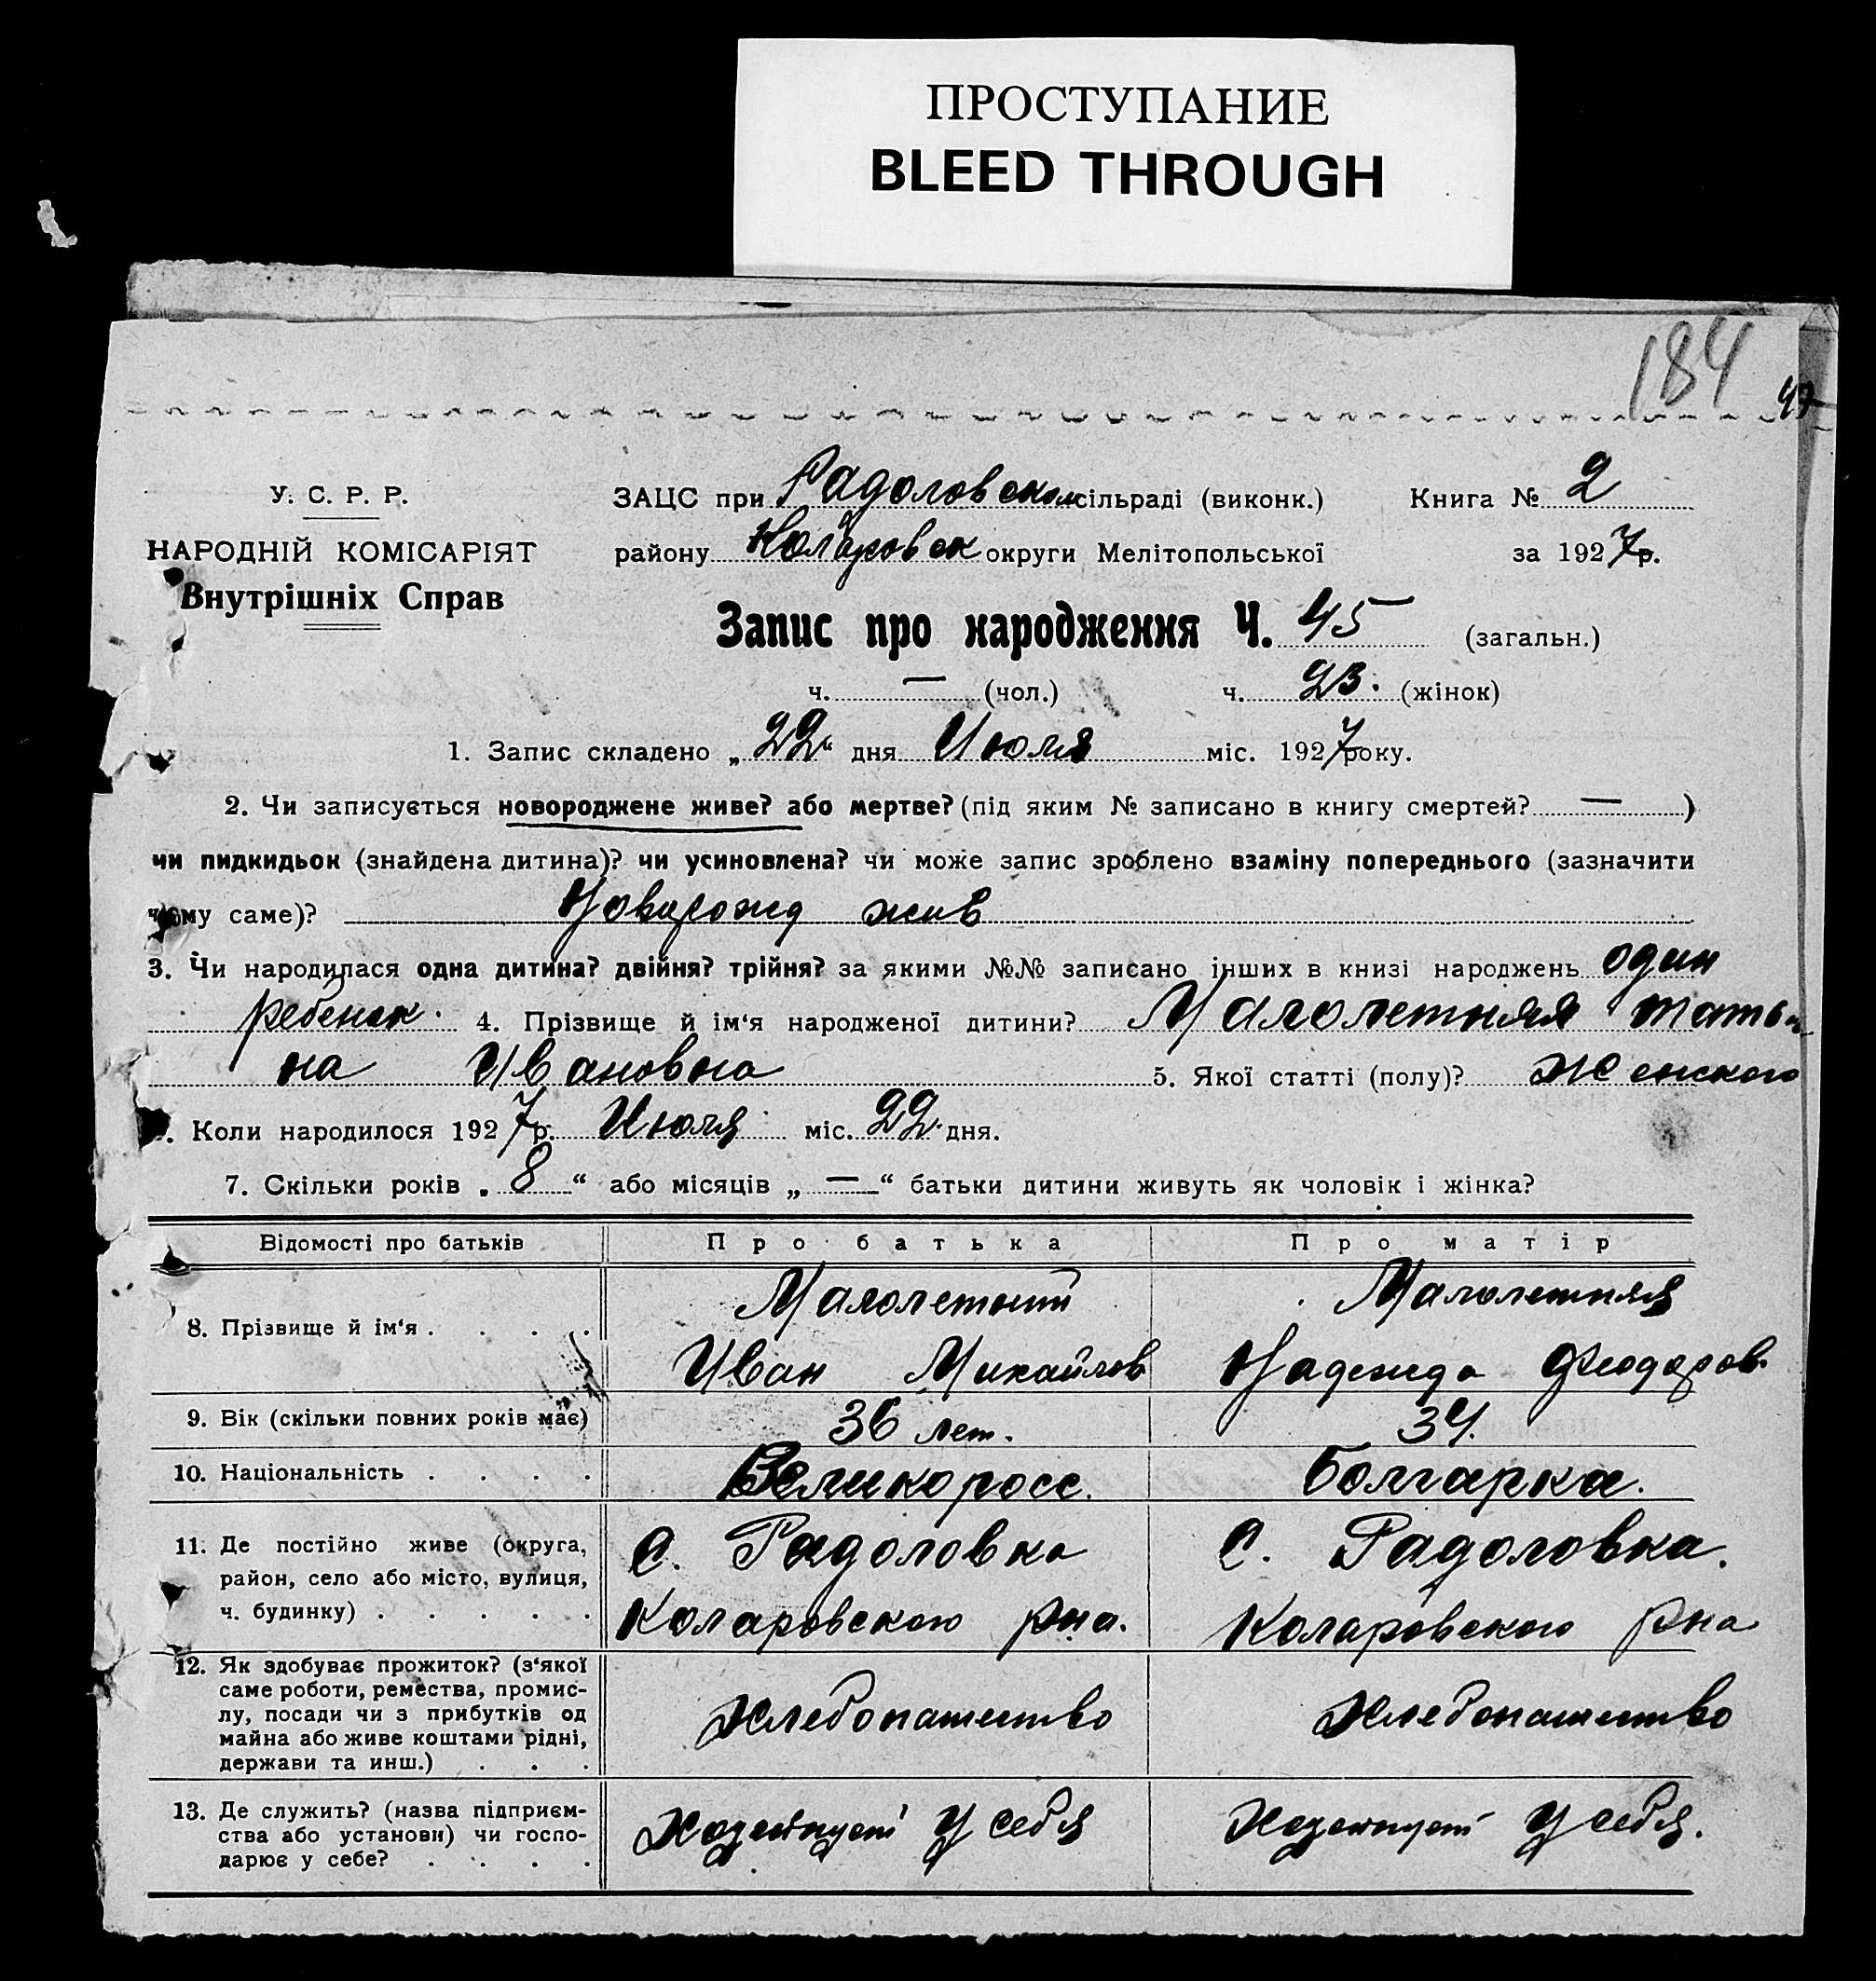 ПРОСТУПАНИЕ
BLEED THROUGH
184
У. С. Р. Р.
НАРОДНІЙ КОМІСАРІЯТ
Внутрішніх Справ
ЗАЦС при Радоловском сільраді (виконк.) Книга № 2
району Коларовск округи Мелітопольської за 1927 р.
Запис про народження Ч. 45 (загальн.)
ч. — (чол.) ч. 23. (жінок)
1. Запис складено „22“ дня Июля міс. 1927 року.
2. Чи записується новороджене живе? або мертве? (під яким № записано в книгу смертей? — )
чи пидкидьок (знайдена дитина)? чи усиновлена? чи може запис зроблено взаміну попереднього (зазначити
чому саме)? Новорожд жив
3. Чи народилася одна дитина? двійня? трійня? за якими №№ записано інших в книзі народжень один
ребенок. 4. Прізвище й ім‘я народженої дитини? Малолетняя Татья
на Ивановна 5. Якої статті (полу)? Женского
. Коли народилося 1927 р. Июля міс. 22 дня.
7. Скільки років „8“ або місяців „—“ батьки дитини живуть як чоловік і жінка?
Відомості про батьків Про батька Про матір
8. Прізвище й ім‘я . . . . Малолетний Малолетняя
Иван Михайлов Надежда Феодоров.
9. Вік (скільки повних років має) 36 лет. 34.
10. Національність . . . . Великоросс. Болгарка.
11. Де постійно живе (округа, район, село або місто, вулиця, ч. будинку) . . . . . С. Радоловка С. Радоловка.
Коларовского рна. Коларовского рна
12. Як здобуває прожиток? (з‘якої
саме роботи, ремества, промис-
лу, посади чи з прибутків од
майна або живе коштами рідні,
держави та инш.) . . . Хлебопашество Хлебопашество
13. Де служить? (назва підприєм-
ства або установи) чи госпо-
дарює у себе? . . . . Хозяйнует у себя Хозяйнует у себя.